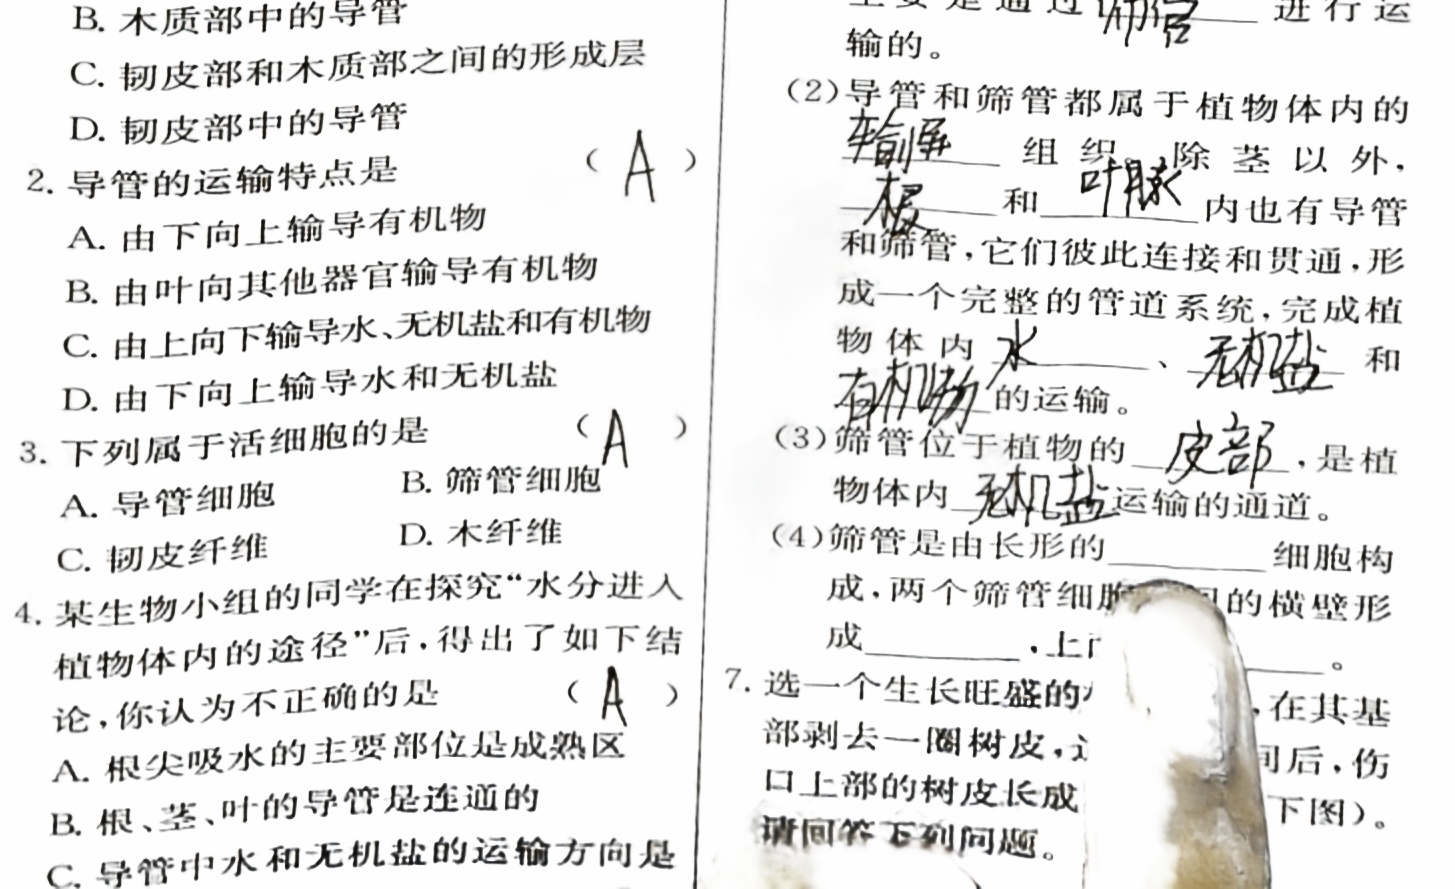 B. 木质部中的导管
C. 韧皮部和木质部之间的形成层
D. 韧皮部中的导管
2. 导管的运输特点是 （ A ）
A. 由下向上输导有机物
B. 由叶向其他器官输导有机物
C. 由上向下输导水、无机盐和有机物
D. 由下向上输导水和无机盐
3. 下列属于活细胞的是 （ A ）
A. 导管细胞 B. 筛管细胞
C. 韧皮纤维 D. 木纤维
4. 某生物小组的同学在探究“水分进入
植物体内的途径”后,得出了如下结
论,你认为不正确的是 （ A ）
A. 根尖吸水的主要部位是成熟区
B. 根、茎、叶的导管是连通的
C. 导管中水和无机盐的运输方向是
主要是通过 进行运
输的。
(2)导管和筛管都属于植物体内的
组织。除茎以外,
根 和 叶脉 内也有导管
和筛管,它们彼此连接和贯通,形
成一个完整的管道系统,完成植
物体内 水 、 无机盐 和
有机物 的运输。
(3)筛管位于植物的 皮部 ,是植
物体内 无机盐 运输的通道。
(4)筛管是由长形的 细胞构
成,两个筛管细胞 的横壁形
成 ,上 。
7. 选一个生长旺盛的 ,在其基
部剥去一圈树皮, 间后,伤
口上部的树皮长成 下图)。
请回答下列问题。